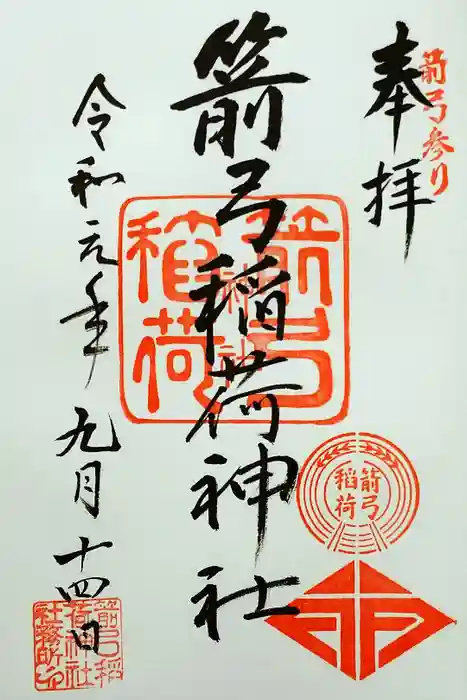 箭弓参り
奉拝
箭弓稲荷神社
令和元年九月十四日
箭弓
稲荷
神社
箭弓
稲荷
箭弓稲
荷神社
社務所之